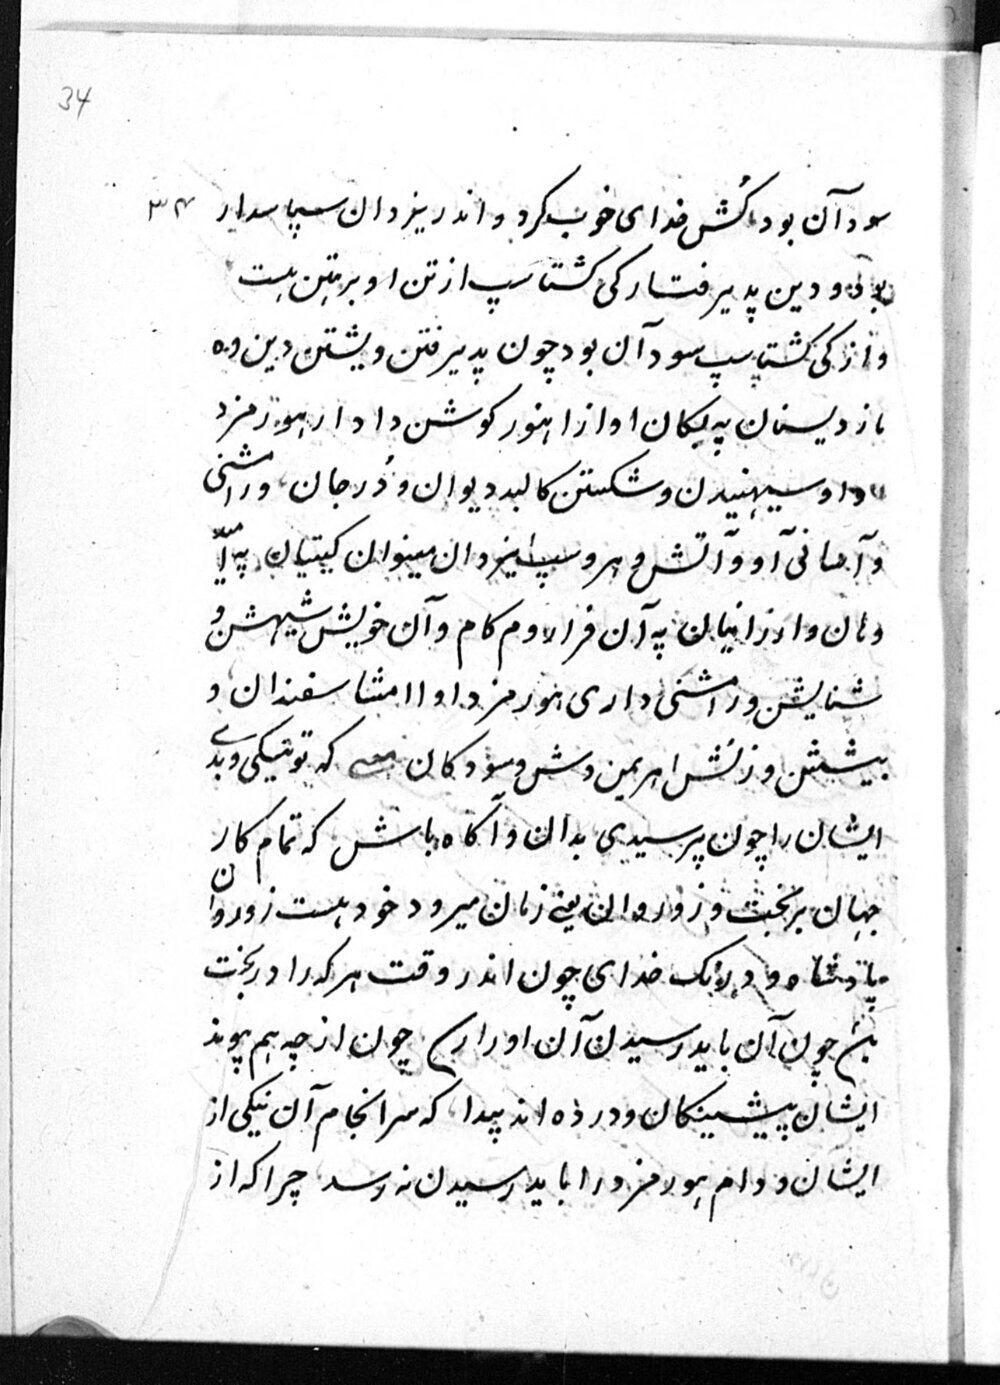 34
سود آن بود کُش خدای خوب کرد و اندر یزدان سپاسدار ۳۴
بوتی و دین پدیرفتار کی کشتاسپ از تن او برهتن هست
و از کی کشتاسپ سود آن بود چون پدیرفتن و یشتن دین وه
مازدیسنان په یکان اواز اهنور کوشن دادار هورمزد
داد و سیهنیدن و شکستن کالبد دیوان و دُرجان و رامشنی
و آسانی آو و آتش و هروسپ ایزدان مینوان کیتیان په
و آن خویش شیهشن و
شنایشن و رامشنی داری هورمزد او امشاسفندان و
بیشش و زنش اهریمن وش و سودکان که تو نیکی و بدی
ایشان را چون پرسیدی بدان و آکاه باش که تمام کار
جهان بر بخت و زوروان یعنی زمان میرود خود هست زوروان
پادشاه و درنک خدای چون اندر وقت هر که را در بخت
چون آن باید رسیدن آن او را رسد چون از چه هم پوند
ایشان پیشینکان و در ده اند پیدا که سرانجام آن نیکی از
ایشان و دام هورمزد را باید رسیدن نه رسد چرا که از